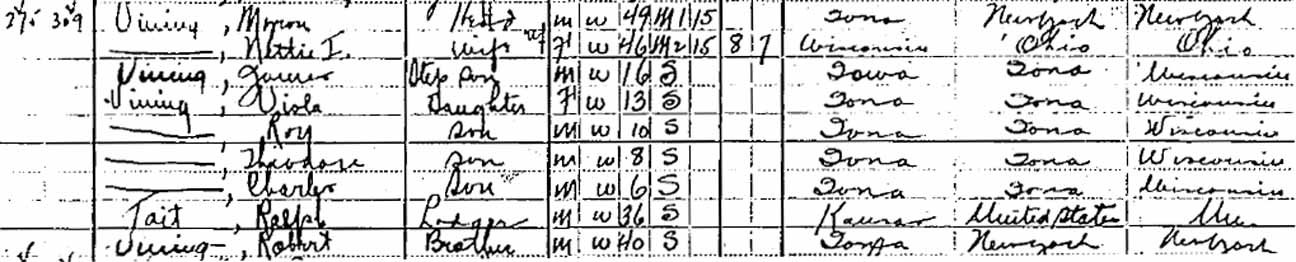 275 309 Vining, Myron Head m w 49 M1 15 Iowa New York New York
———, Nettie I. Wife F w 46 M2 15 8 7 Wisconsin Ohio Ohio
Vining, Step Son m w 16 S Iowa Iowa Wisconsin
Vining, Viola Daughter F w 13 S Iowa Iowa Wisconsin
———, Roy Son m w 10 S Iowa Iowa Wisconsin
———, Theodore Son m w 8 S Iowa Iowa Wisconsin
———, Charles Son m w 6 S Iowa Iowa Wisconsin
Tait, Ralph Lodger m w 36 S Kansas United States
Vining, Robert Brother m w 40 S Iowa New York New York